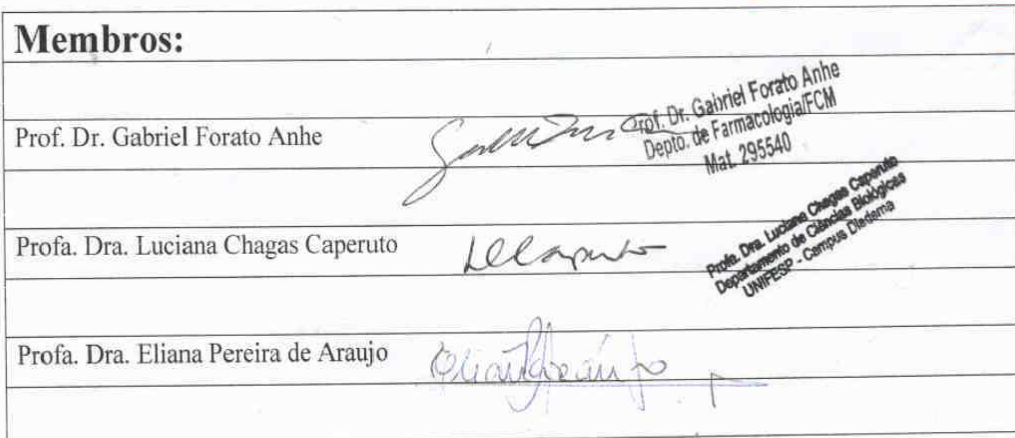 Membros:
Prof. Dr. Gabriel Forato Anhe
Prof. Dr. Gabriel Forato Anhe
Depto. de Farmacologia/FCM
Mat. 295540
Profa. Dra. Luciana Chagas Caperuto
Profa. Dra. Luciana Chagas Caperuto
Departamento de Ciências Biológicas
UNIFESP - Campus Diadema
Profa. Dra. Eliana Pereira de Araujo